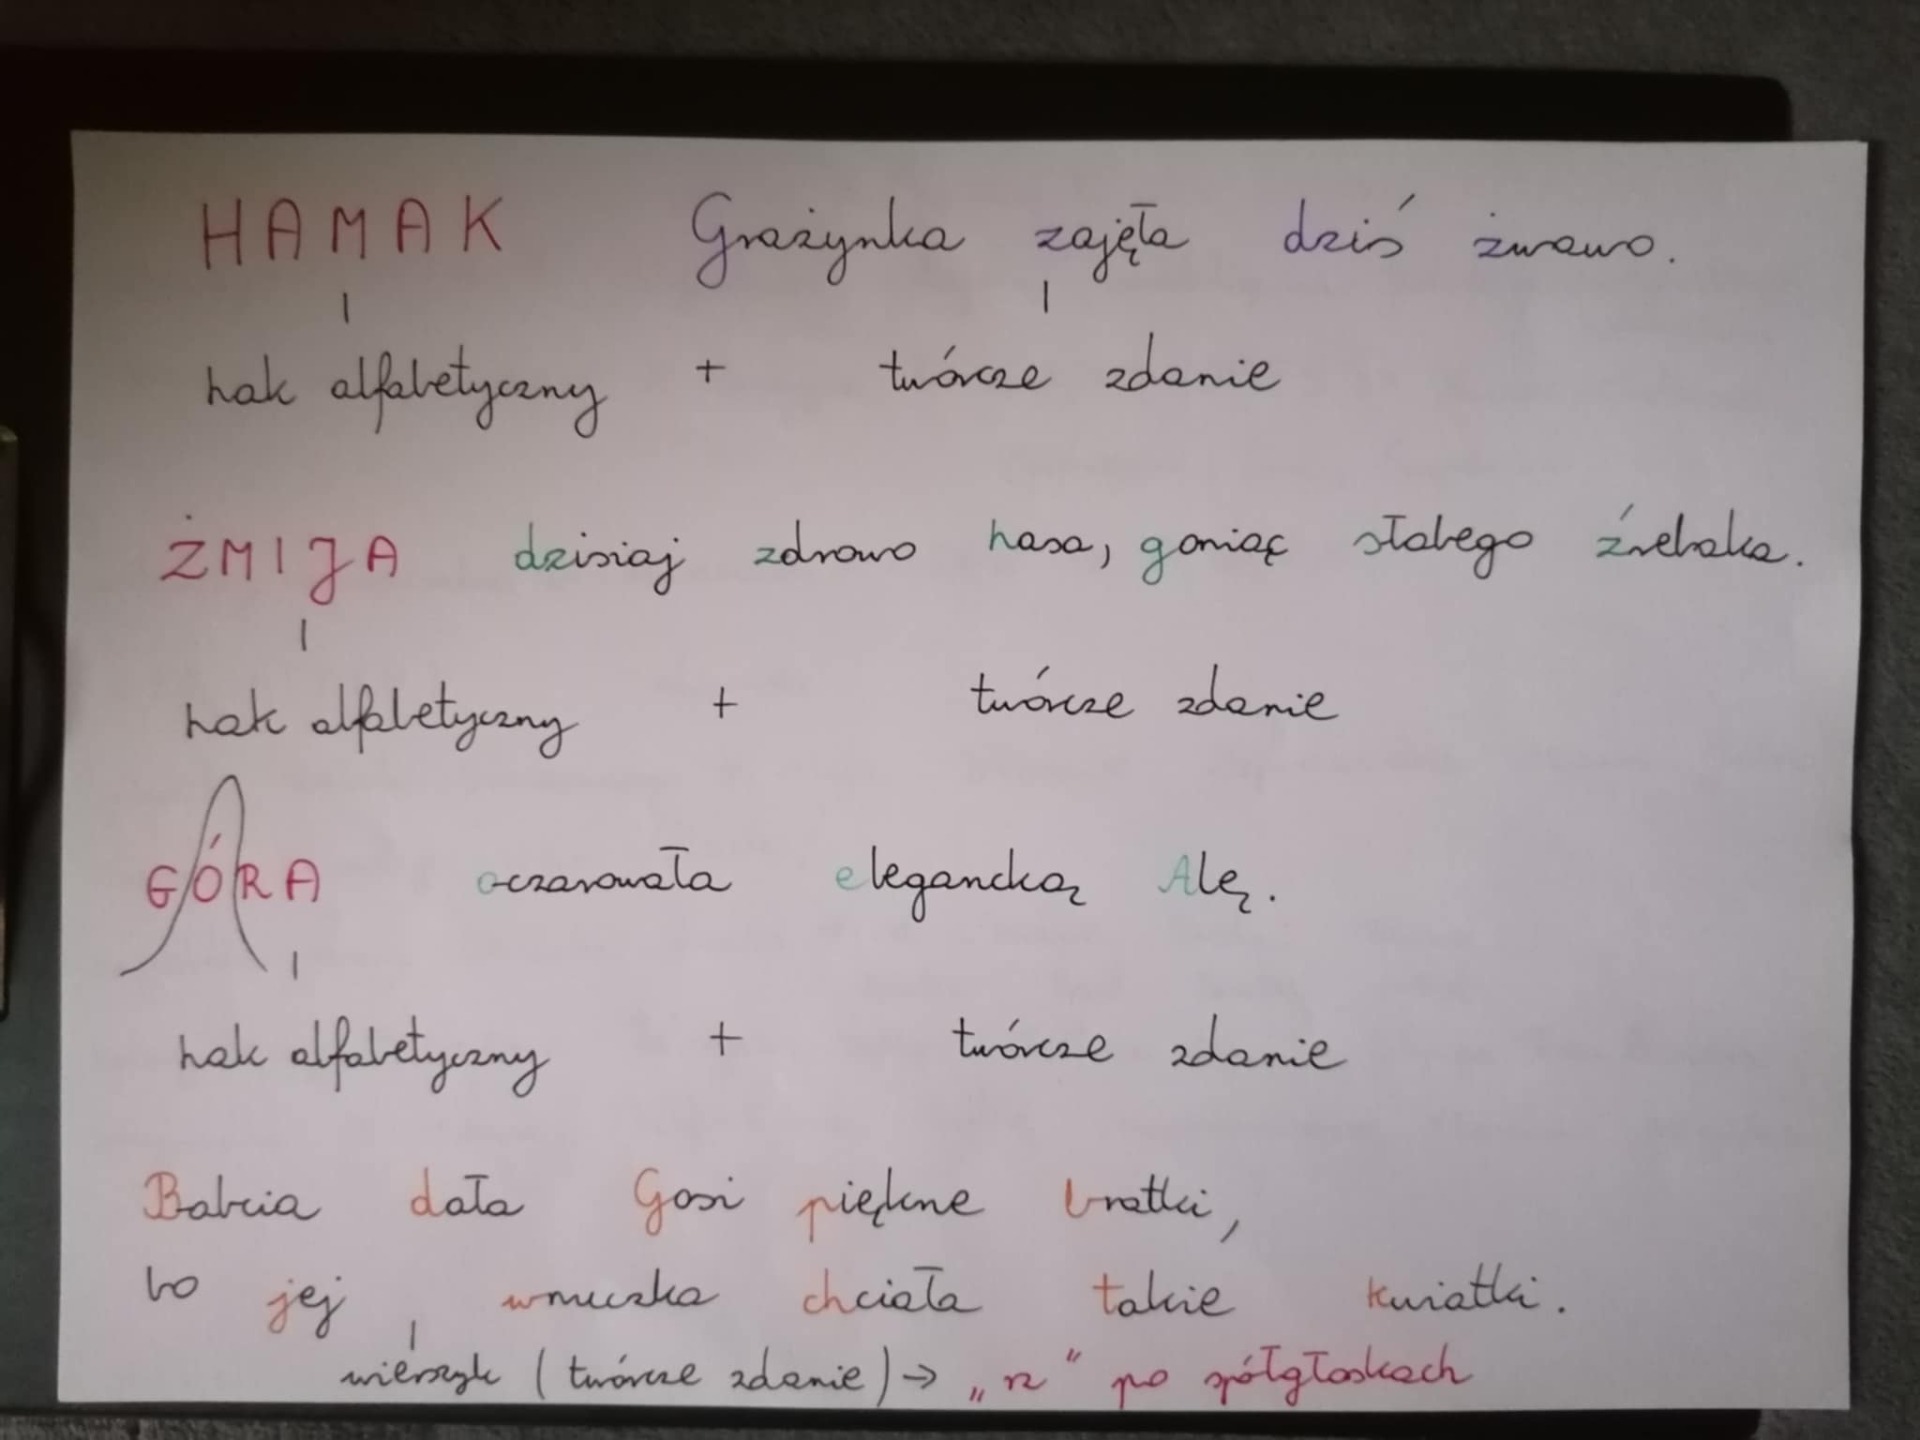 HAMAK Grażynka zajęła dziś żwawo.
hak alfabetyczny + twórcze zdanie
ŻMIJA dzisiaj zdrowo hasa, goniąc słabego źrebaka.
hak alfabetyczny + twórcze zdanie
GÓRA oczarowała elegancką Alę.
hak alfabetyczny + twórcze zdanie
Babcia dała Gosi piękne bratki,
bo jej wnuczka chciała takie kwiatki.
wierszyk (twórcze zdanie) → „rz" po spółgłoskach